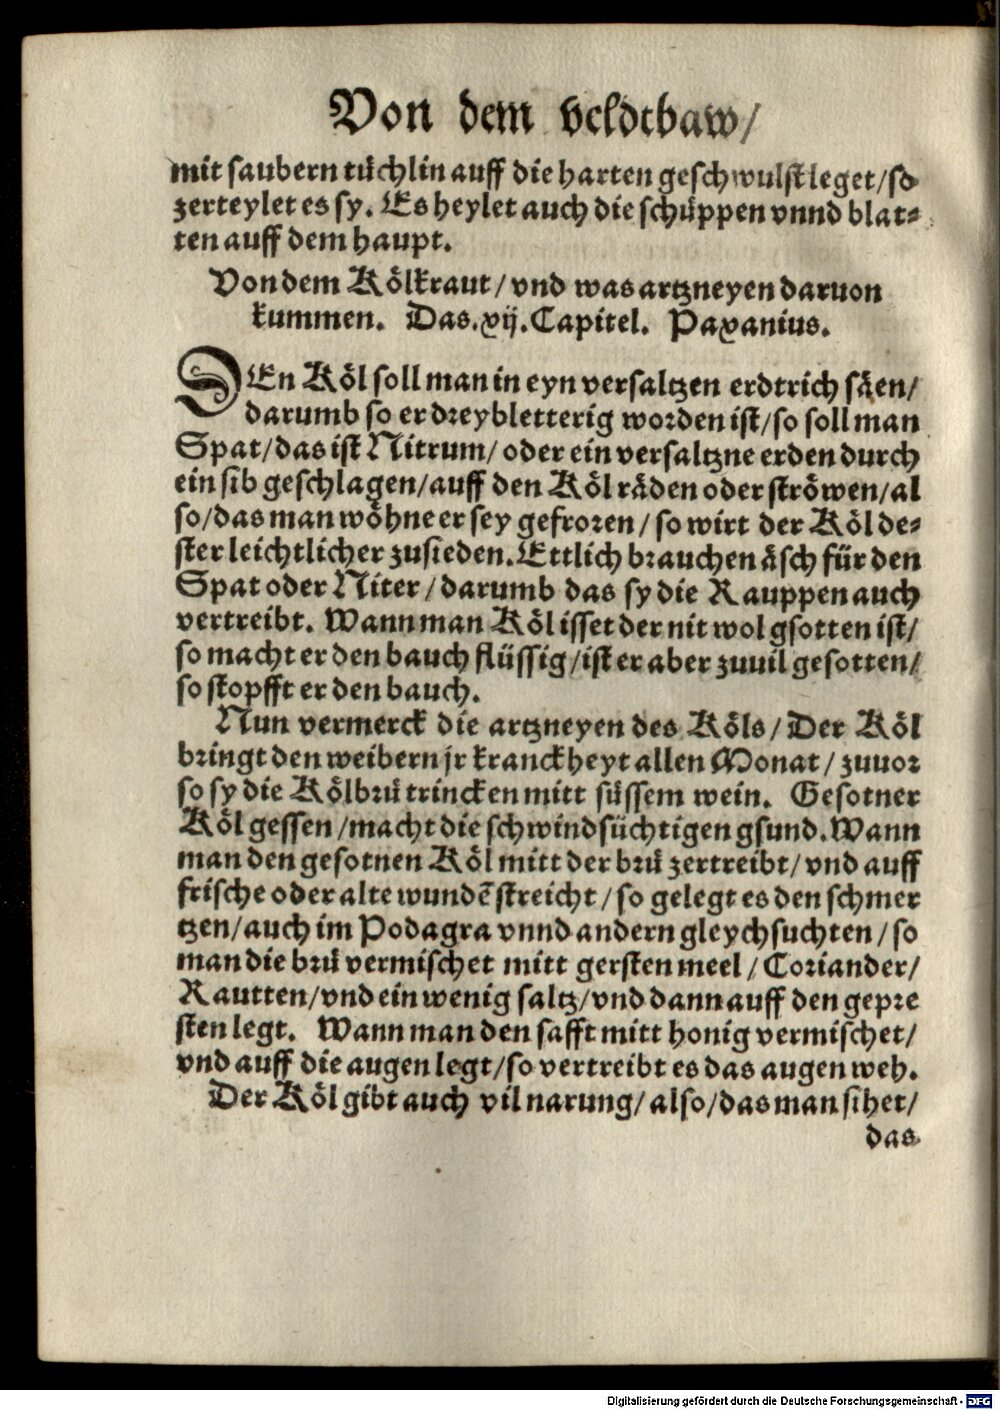 Von dem veldtbaw/
mit saubern tüchlin auff die harten geschwulst leget/so
zerteylet es sy. Es heylet auch die schüppen vnnd blat⸗
ten auff dem haupt.
Von dem Kölkraut/vnd was artzneyen daruon
kummen. Das.xij.Capitel. Paxanius.
DEn Köl soll man in eyn versaltzen erdtrich säen/
darumb so er dreybletterig worden ist/so soll man
Spat/das ist Nitrum/oder ein versaltzne erden durch
ein sib geschlagen/auff den Köl räden oder ströwen/al
so/das man wöhne er sey gefroren/so wirt der Köl de⸗
ster leichtlicher zusieden. Ettlich brauchen äsch für den
Spat oder Niter/darumb das sy die Rauppen auch
vertreibt. Wann man Köl isset der nit wol gsotten ist/
so macht er den bauch flüssig/ist er aber zuuil gesotten/
so stopfft er den bauch.
Nun vermerck die artzneyen des Köls/Der Köl
bringt den weibern jr kranckheyt allen Monat/zuuor
so sy die Kölbrü trincken mitt süssem wein. Gesotner
Köl gessen/macht die schwindsüchtigen gsund. Wann
man den gesotnen Köl mitt der brü zertreibt/vnd auff
frische oder alte wundē streicht/so gelegt es den schmer
tzen/auch im Podagra vnnd andern gleychsuchten/so
man die brü vermischet mitt gersten meel/Coriander/
Rautten/vnd ein wenig saltz/vnd dann auff den gepre
sten legt. Wann man den safft mitt honig vermischet/
vnd auff die augen legt/so vertreibt es das augen weh.
Der Köl gibt auch vil narung/also/das man sihet/
das
Digitalisierung gefördert durch die Deutsche Forschungsgemeinschaft - DFG